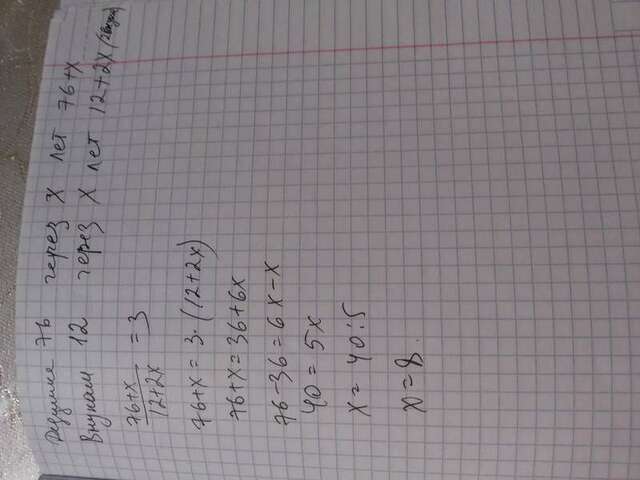 Дедушке 76 через X лет 76+x
Внукам 12 через X лет 12+2x (2внука)
76+x / 12+2x = 3
76+x = 3·(12+2x)
76+x = 36+6x
76-36 = 6x-x
40 = 5x
x = 40:5
x = 8.